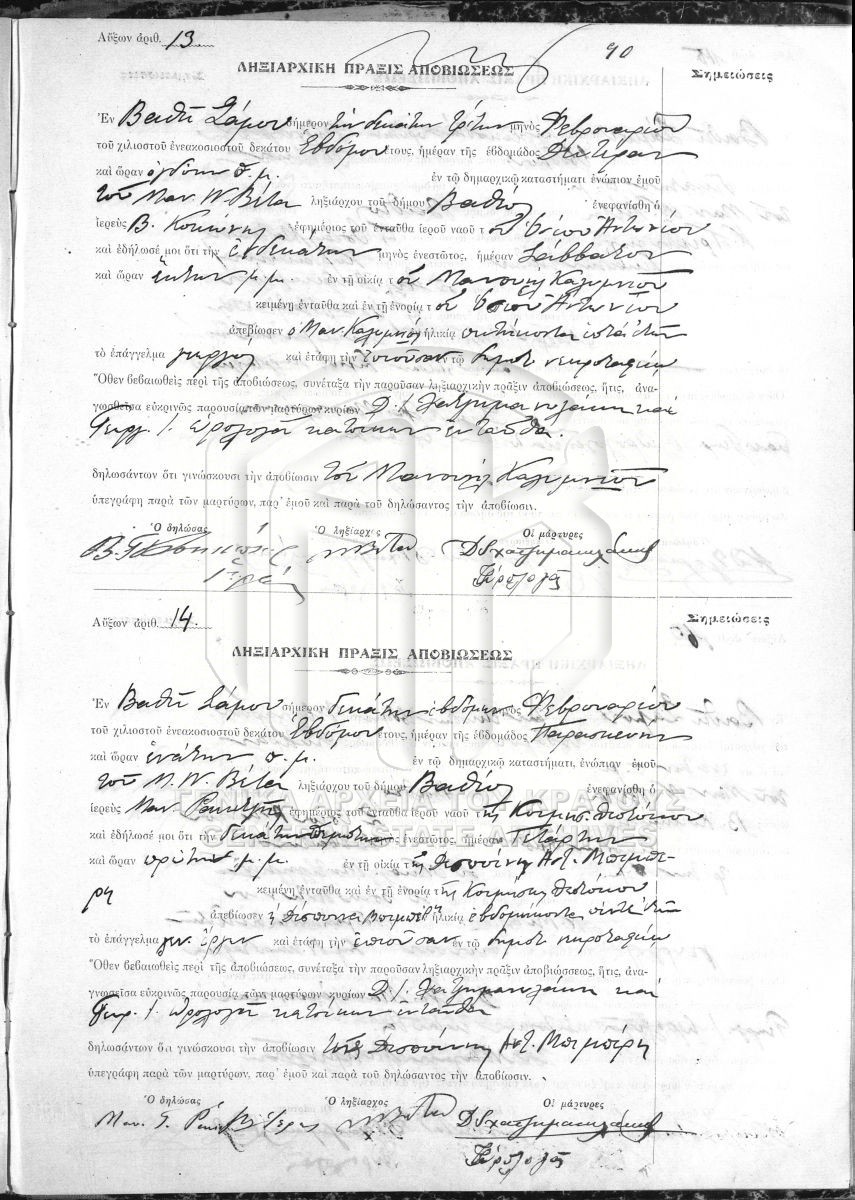 Αὔξων ἀριθ. 13
90
ΛΗΞΙΑΡΧΙΚΗ ΠΡΑΞΙΣ ΑΠΟΒΙΩΣΕΩΣ
Σημειώσεις
Ἐν Βαθεῖ Σάμου σήμερον τὴν δεκάτην τρίτην μηνὸς Φεβρουαρίου
τοῦ χιλιοστοῦ ἐνεακοσιοστοῦ δεκάτου Ἑβδόμου ἔτους, ἡμέραν τῆς ἑβδομάδος Δευτέραν
καὶ ὥραν ὀγδόην π. μ. ἐν τῷ δημαρχικῷ καταστήματι ἐνώπιον ἐμοῦ
τοῦ Μαν. Ν. Βίτα ληξιάρχου τοῦ δήμου Βαθέος ἐνεφανίσθη ὁ
ἱερεὺς Β. ἐφημέριος τοῦ ἐνταῦθα ἱεροῦ ναοῦ τοῦ Ὁσίου Ἀντωνίου
καὶ ἐδήλωσέ μοι ὅτι τὴν ἑνδεκάτην μηνὸς ἐνεστῶτος, ἡμέραν Σάββατον
καὶ ὥραν ἕκτην μ. μ. ἐν τῇ οἰκίᾳ τοῦ Μανουὴλ Καλυμνιοῦ
κειμένῃ ἐνταῦθα καὶ ἐν τῇ ἐνορίᾳ τοῦ Ὁσίου Ἀντωνίου
ἀπεβίωσεν ὁ Μαν. Καλυμνιός ἡλικία πεντήκοντα ἑπτὰ ἐτῶν
τὸ ἐπάγγελμα γεωργός καὶ ἐτάφη τὴν ἐπιοῦσαν ἐν τῷ δημοτ. νεκροταφείῳ
Ὅθεν βεβαιωθεὶς περὶ τῆς ἀποβιώσεως, συνέταξα τὴν παροῦσαν ληξιαρχικὴν πρᾶξιν ἀποβιώσεως, ἥτις, ἀνα-
γνωσθεῖσα εὐκρινῶς παρουσίᾳ τῶν μαρτύρων κυρίων Δ. Ι. Χατζημανωλάκη καὶ
Γεωρ. Ι. Ὡρολογᾶ κατοίκων ἐνταῦθα.
δηλωσάντων ὅτι γινώσκουσι τὴν ἀποβίωσιν τοῦ Μανουὴλ Καλυμνιοῦ
ὑπεγράφη παρὰ τῶν μαρτύρων, παρ' ἐμοῦ καὶ παρὰ τοῦ δηλώσαντος τὴν ἀποβίωσιν.
Ὁ δηλώσας Ὁ ληξίαρχος Οἱ μάρτυρες
Δ Ι Χατζημανωλάκης
Γ Ι Ὡρολογᾶς
Αὔξων ἀριθ. 14
Σημειώσεις
ΛΗΞΙΑΡΧΙΚΗ ΠΡΑΞΙΣ ΑΠΟΒΙΩΣΕΩΣ
Ἐν Βαθεῖ Σάμου σήμερον δεκάτην ἑβδόμην μηνὸς Φεβρουαρίου
τοῦ χιλιοστοῦ ἐνεακοσιοστοῦ δεκάτου Ἑβδόμου ἔτους, ἡμέραν τῆς ἑβδομάδος Παρασκευὴν
καὶ ὥραν ἐνάτην π. μ. ἐν τῷ δημαρχικῷ καταστήματι, ἐνώπιον ἐμοῦ
τοῦ Μ. Ν. Βίτα ληξιάρχου τοῦ δήμου Βαθέος ἐνεφανίσθη ὁ
ἱερεὺς Μαν. ἐφημέριος τοῦ ἐνταῦθα ἱεροῦ ναοῦ τῆς Κοιμησ. Θεοτόκου
καὶ ἐδήλωσέ μοι ὅτι τὴν δεκάτην πέμπτην ἐνεστῶτος, ἡμέραν Τετάρτην
καὶ ὥραν πρώτην μ. μ. ἐν τῇ οἰκίᾳ τῆς Δεσποίνης Ἀντ. Μπιμπέ-
ρη
κειμένῃ ἐνταῦθα καὶ ἐν τῇ ἐνορίᾳ τῆς Κοιμήσεως Θεοτόκου
ἀπεβίωσεν ἡ Δέσποινα Μπιμπέρη ἡλικία ἑβδομήκοντα πέντε ἐτῶν
τὸ ἐπάγγελμα γυν. ἔργα καὶ ἐτάφη τὴν ἐπιοῦσαν ἐν τῷ δημοτ. νεκροταφείῳ
Ὅθεν βεβαιωθεὶς περὶ τῆς ἀποβιώσεως, συνέταξα τὴν παροῦσαν ληξιαρχικὴν πρᾶξιν ἀποβιώσεως, ἥτις, ἀνα-
γνωσθεῖσα εὐκρινῶς παρουσίᾳ τῶν μαρτύρων κυρίων Δ. Ι. Χατζημανωλάκη καὶ
Γεωρ. Ι. Ὡρολογᾶ κατοίκων ἐνταῦθα
δηλωσάντων ὅτι γινώσκουσι τὴν ἀποβίωσιν τῆς Δεσποίνης Ἀντ. Μπιμπέρη
ὑπεγράφη παρὰ τῶν μαρτύρων, παρ' ἐμοῦ καὶ παρὰ τοῦ δηλώσαντος τὴν ἀποβίωσιν.
Ὁ δηλώσας Ὁ ληξίαρχος Οἱ μάρτυρες
Δ Ι Χατζημανωλάκης
Γ Ι Ὡρολογᾶς
ΓΕΝΙΚΑ ΑΡΧΕΙΑ ΤΟΥ ΚΡΑΤΟΥΣ
GENERAL STATE ARCHIVES